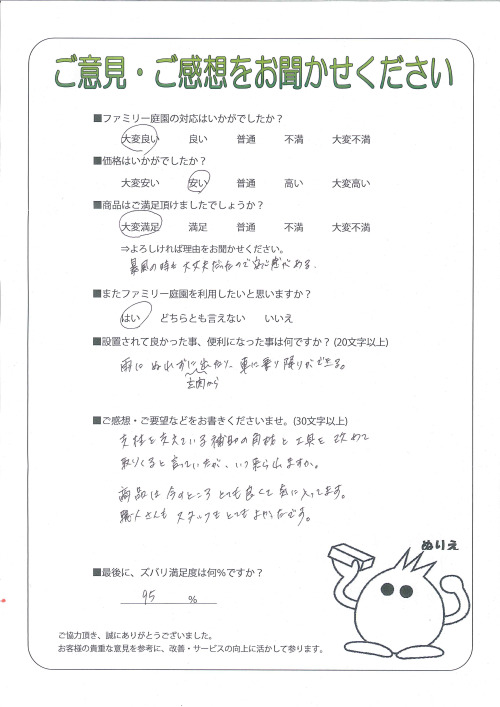 ご意見・ご感想をお聞かせください
■ファミリー庭園の対応はいかがでしたか？
大変良い 良い 普通 不満 大変不満
■価格はいかがでしたか？
大変安い 安い 普通 高い 大変高い
■商品はご満足頂けましたでしょうか？
大変満足 満足 普通 不満 大変不満
⇒よろしければ理由をお聞かせください。
暴風の時も大丈夫だったので安心感がある。
■またファミリー庭園を利用したいと思いますか？
はい どちらとも言えない いいえ
■設置されて良かった事、便利になった事は何ですか？(20文字以上)
雨にぬれずに出たり、車に乗り降りができる。
玄関から
■ご感想・ご要望などをお書きくださいませ。(30文字以上)
支柱を支えている補助の角柱と工具を改めて
取りくると言っていたが、いつ来られますか。
商品は今のところとても良くて気に入ってます。
職人さんもスタッフもとてもよかったです。
ぬりえ
■最後に、ズバリ満足度は何％ですか？
95 ％
ご協力頂き、誠にありがとうございました。
お客様の貴重な意見を参考に、改善・サービスの向上に活かして参ります。